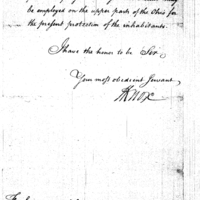 be employed on the upper parts of the Ohio for
the present protection of the inhabitants.
I have the honor to be Sir
Your most obedient Servant
HKnox